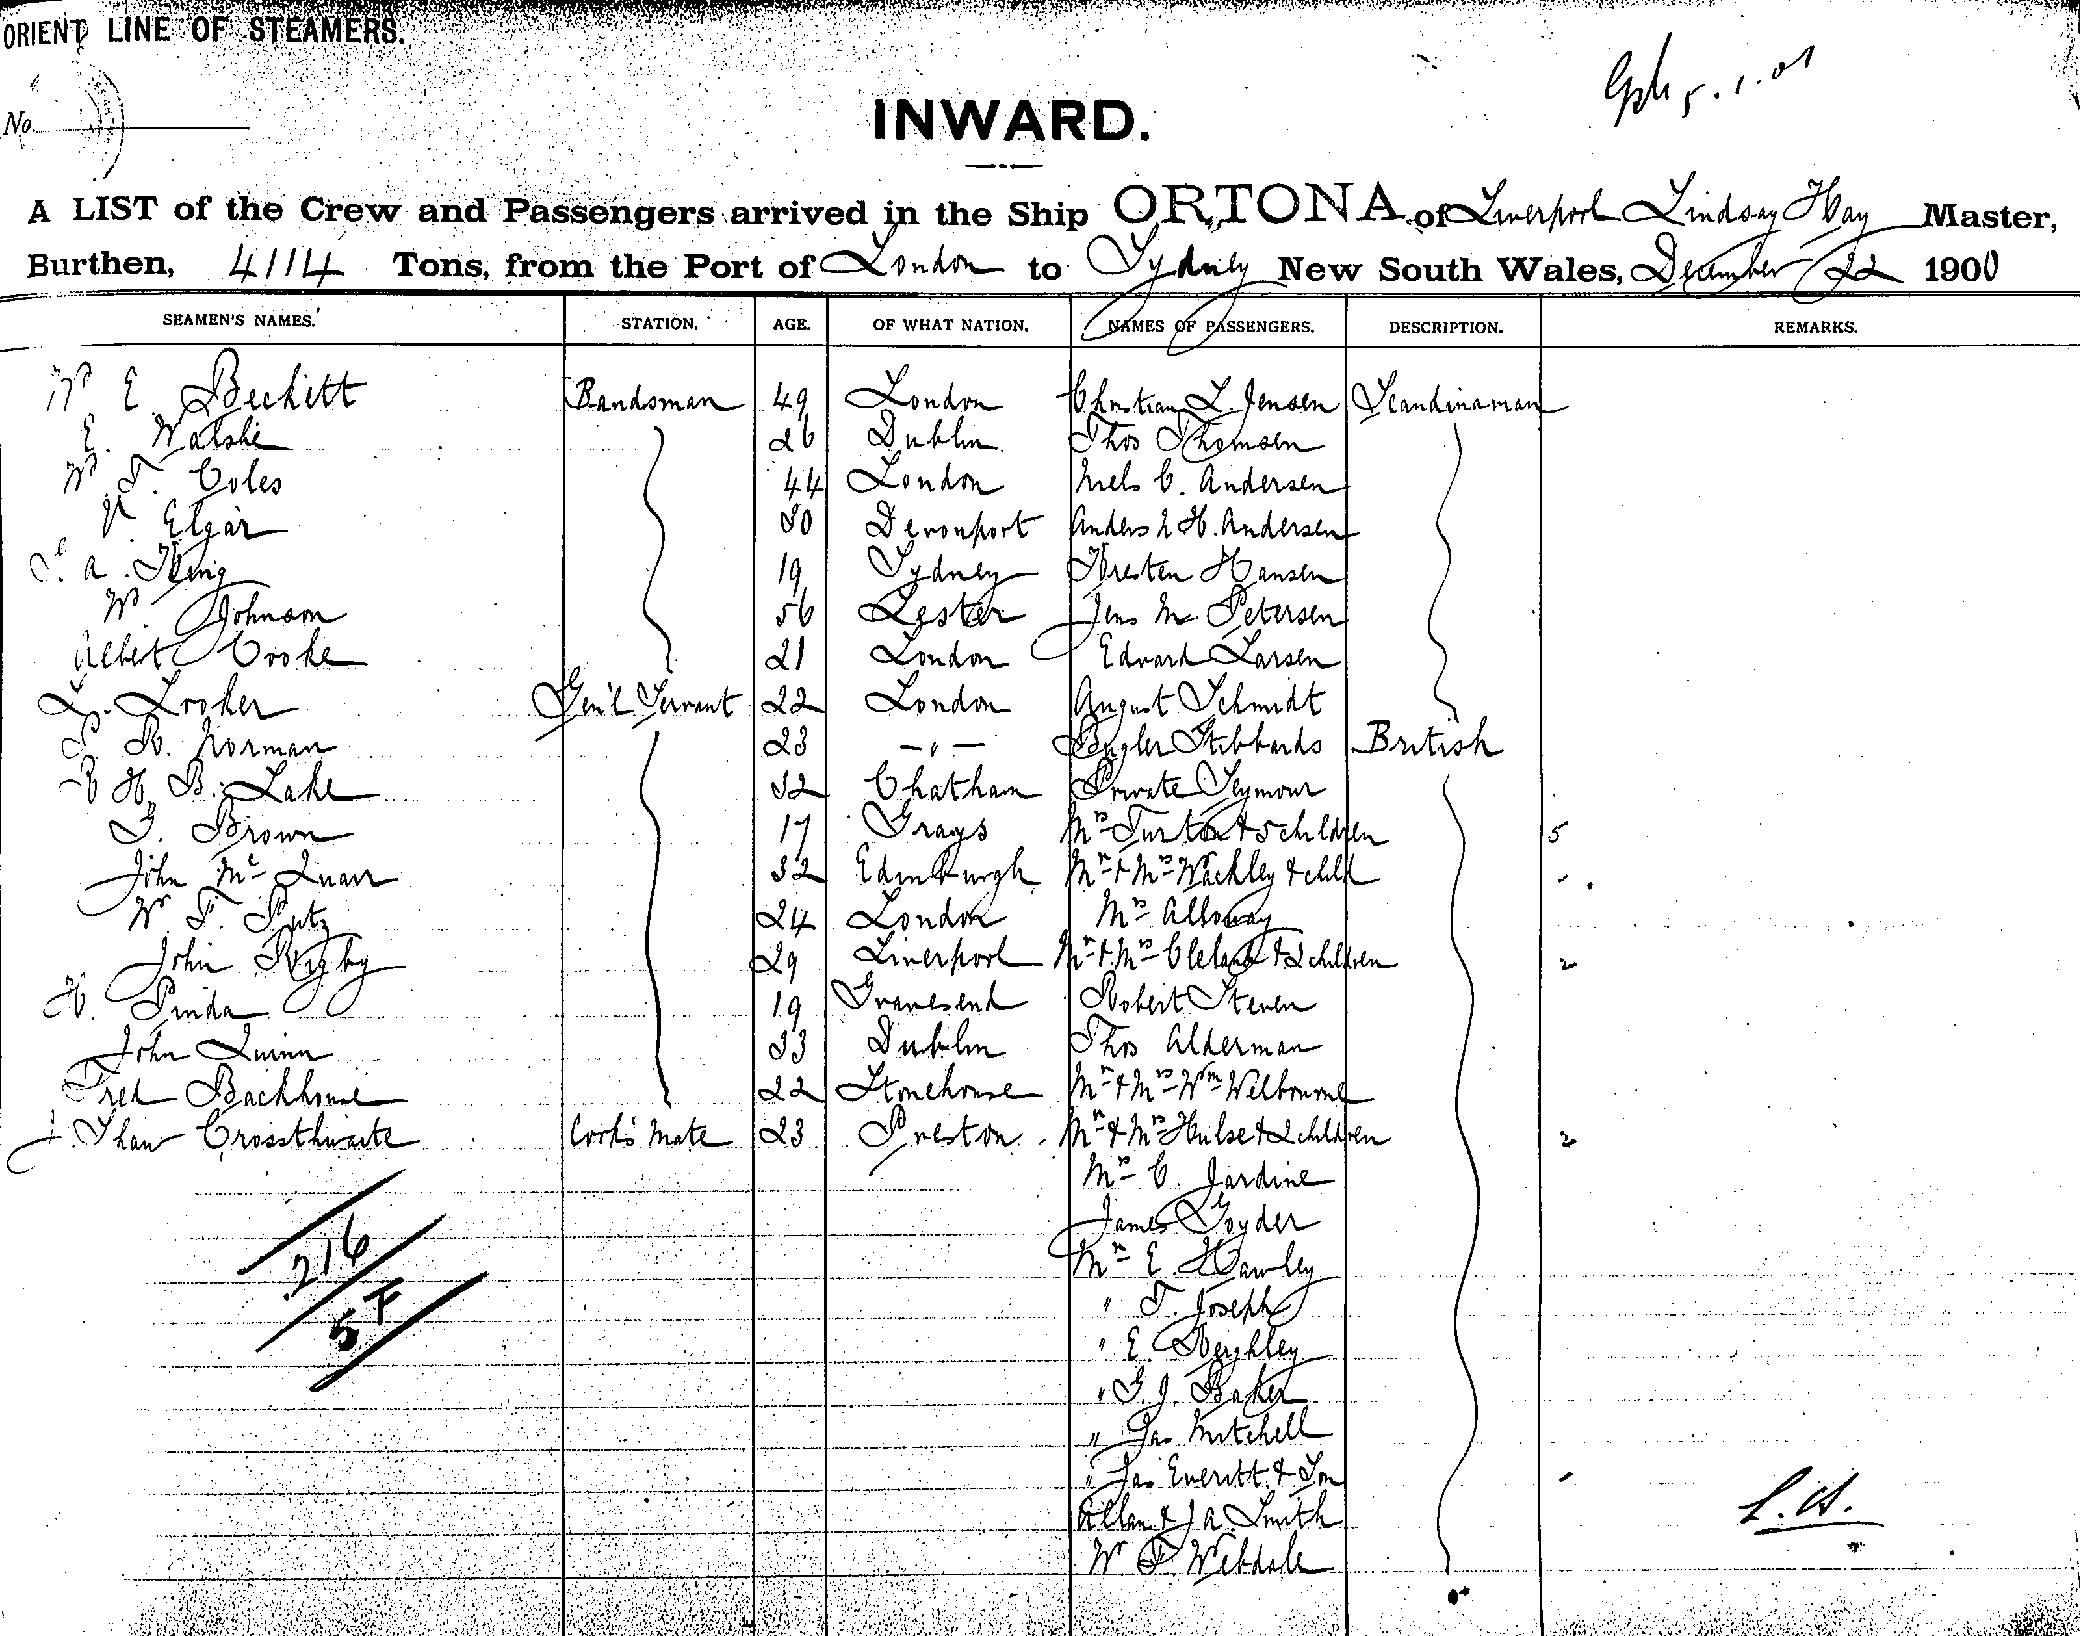 ORIENT LINE OF STEAMERS.
5.1.01
No.
INWARD.
A LIST of the Crew and Passengers arrived in the Ship ORTONA of Liverpool Lindsay Hay Master,
Burthen, 4114 Tons, from the Port of London to Sydney New South Wales, December 22 1900
SEAMEN'S NAMES. STATION. AGE. OF WHAT NATION. NAMES OF PASSENGERS. DESCRIPTION. REMARKS.
E Beckett Bandsman 49 London Christian L. Jensen Scandinavian
E. Walshe 26 Dublin Thos Thomsen
W T. Coles 44 London Niels C. Andersen
Elgar 30 Devonport Anders H. Andersen
A. King 19 Sydney Kresten Hansen
W Johnson 56 Lester Jens M. Petersen
Albert Cooke 21 London Edvard Larsen
L. Looker Gen'l Servant 22 London August Schmidt
R. Norman 23 — " — Bugler Stibbards British
H. B. Lake 32 Chatham Private Seymour
G. Brown 17 Grays Mrs Turton & 5 children 5
John Mc Quarr 32 Edinburgh Mr & Mrs Wackley & child
W T. Putz 24 London Mrs Alloway
John Rigby 29 Liverpool Mr & Mrs Cleland & 2 children 2
H. Pinda 19 Gravesend Robert Steven
John Quinn 33 Dublin Thos Alderman
Fred Backhouse 22 Stonehouse Mr & Mrs Wm Welbourne
J. Shaw Crossthwaite Cook's Mate 23 Preston Mr & Mrs Hulse & 2 children 2
Mrs C. Jardine
James Goyder
Mr E. Hawley
" T. Joseph
" E. Keighley
" G. J. Baker
" Jas Mitchell
" Jas Everitt & Son
Allan & J A. Smith
W T Webdale
216
5F
L.H.